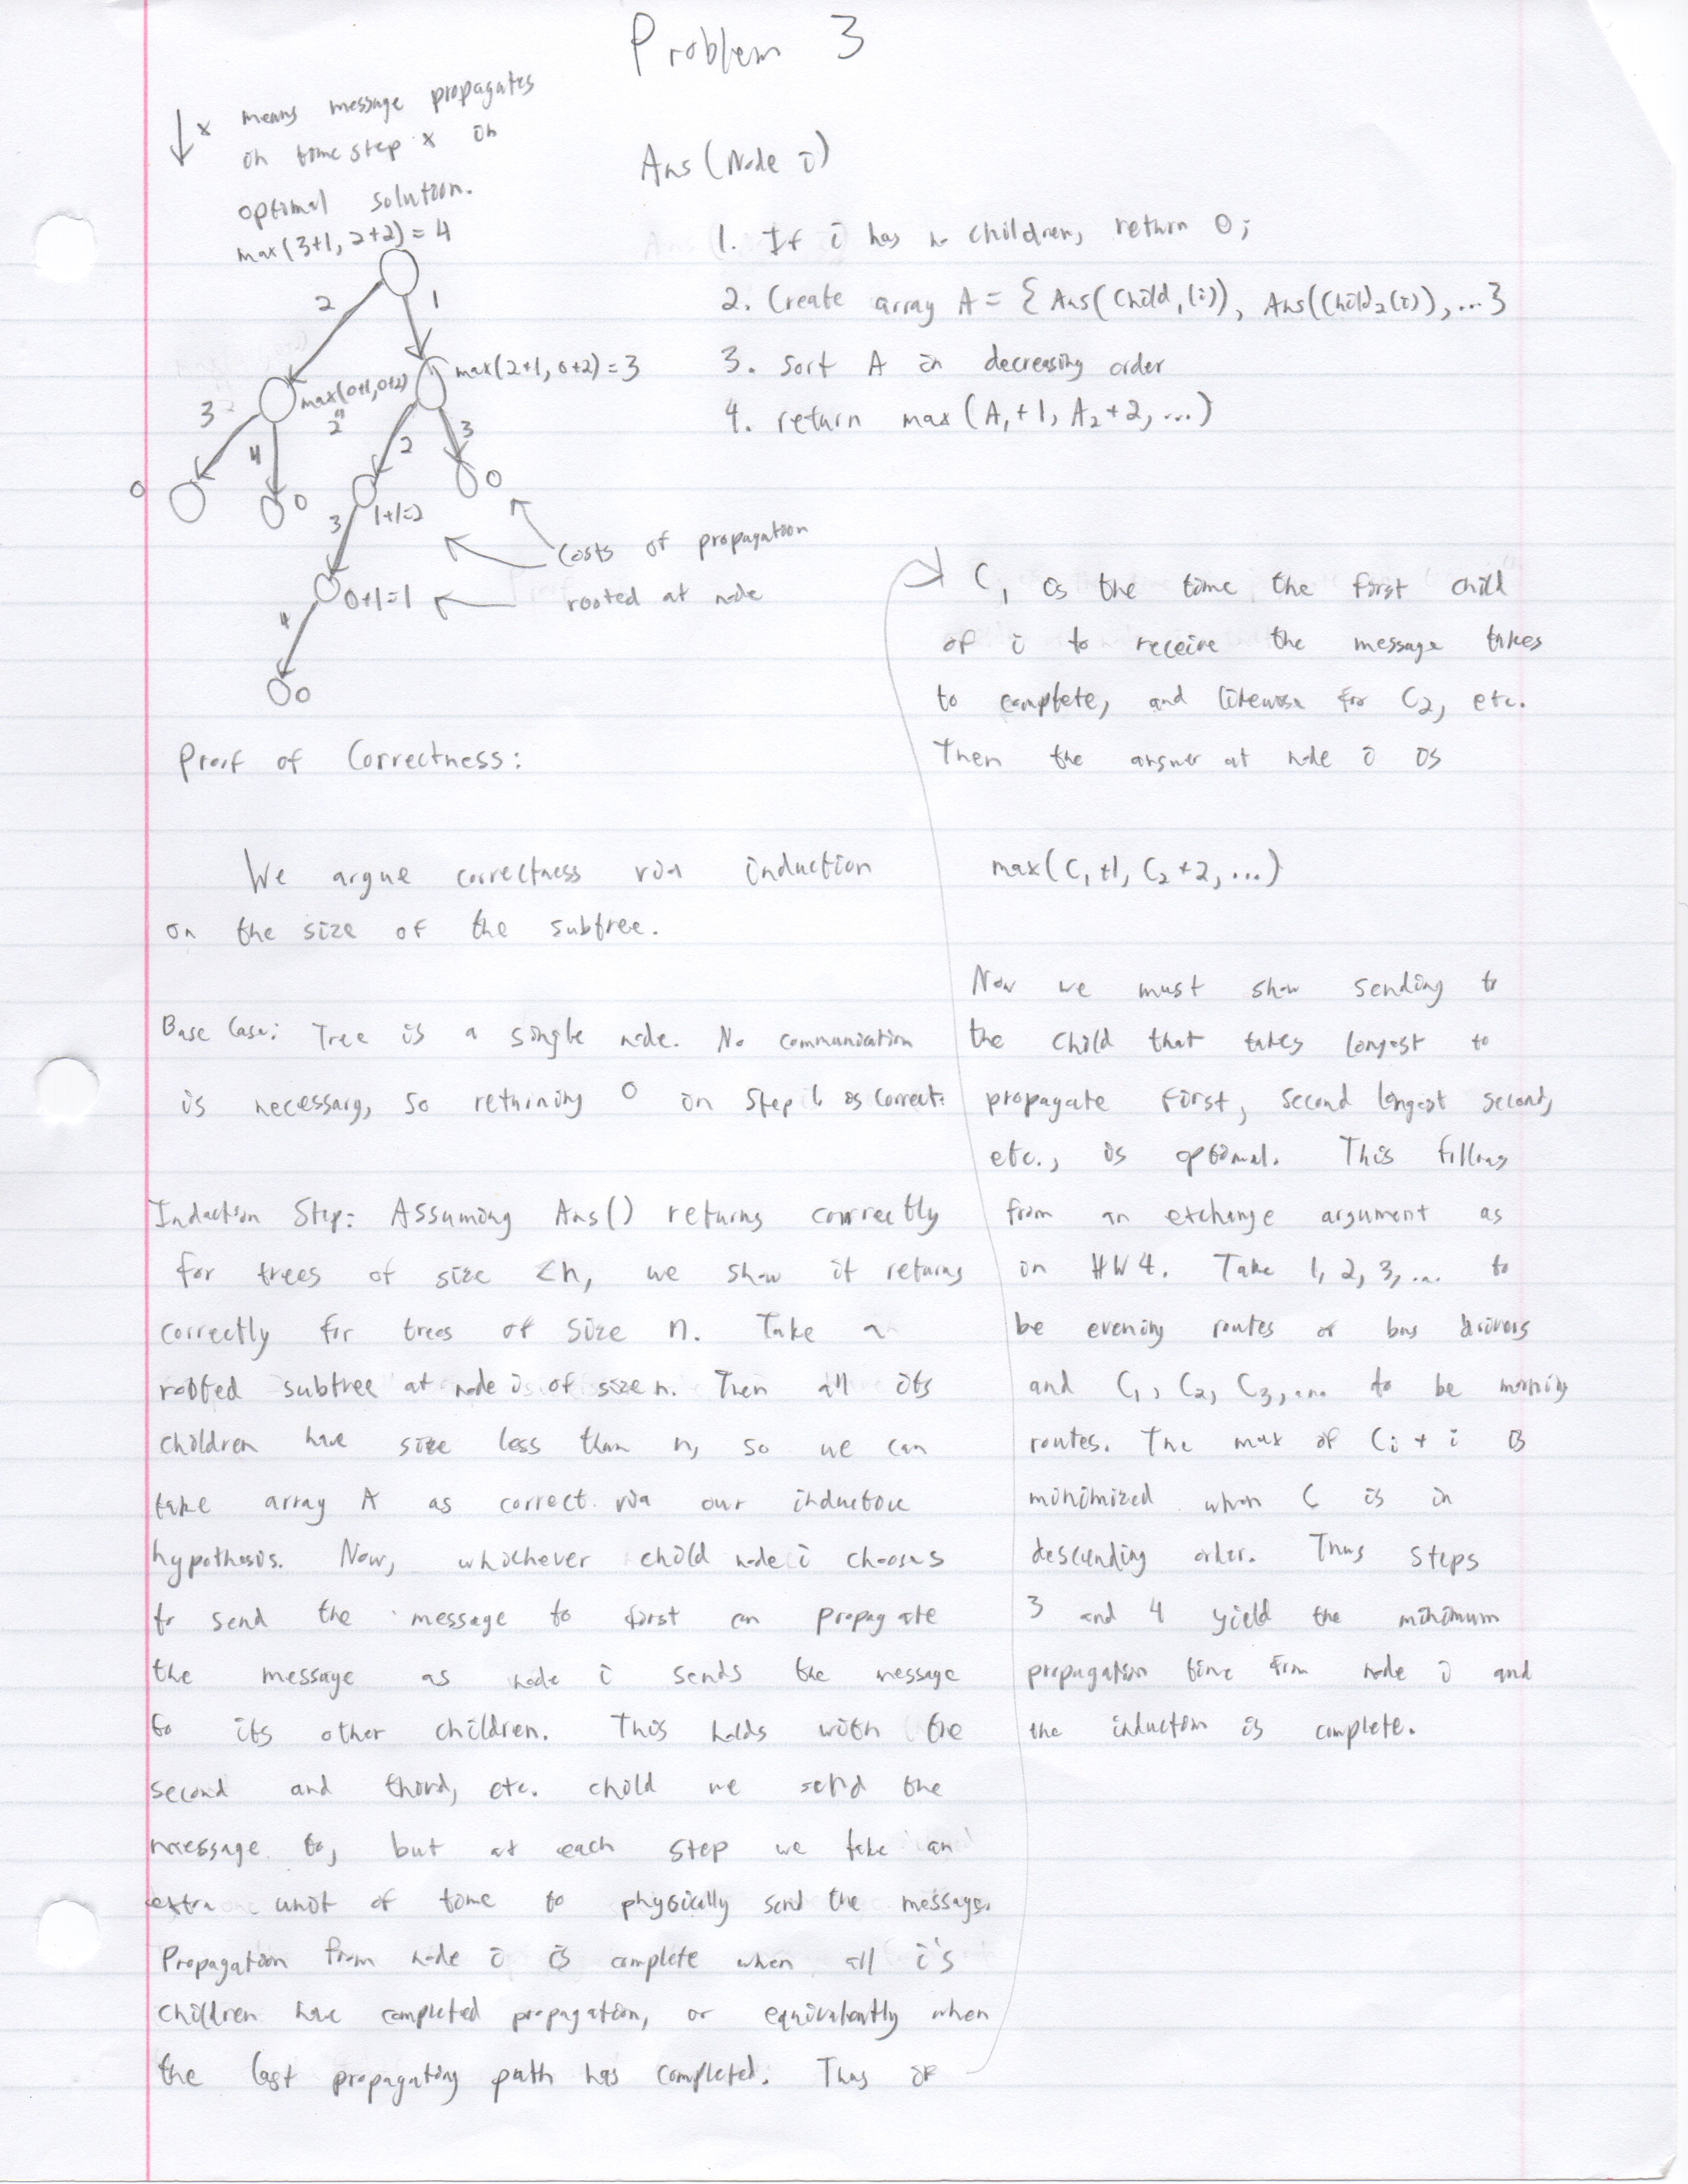 Problem 3
↓x means message propagates
on time step x on
optimal solution.
max(3+1, 2+2) = 4
2
1
max(0+1, 0+2)
"
2
max(2+1, 0+2) = 3
3
4
2
3
0
0
0
1+1=2
3
0+1=1
4
0
Costs of propagation
rooted at node
Ans(Node i)
1. If i has no children, return 0;
2. Create array A = {Ans(Child₁(i)), Ans(Child₂(i)), ...}
3. Sort A in decreasing order
4. return max(A₁+1, A₂+2, ...)
Proof of Correctness:
We argue correctness via induction
on the size of the subtree.
Base Case: Tree is a single node. No communication
is necessary, so returning 0 on Step 1. is correct.
Induction Step: Assuming Ans() returns correctly
for trees of size <n, we show it returns
correctly for trees of size n. Take a
rooted subtree at node i of size n. Then all its
children have size less than n, so we can
take array A as correct via our inductive
hypothesis. Now, whichever child node i chooses
to send the message to first can propagate
the message as node i sends the message
to its other children. This holds with the
second and third, etc. child we send the
message to, but at each step we take an
extra unit of time to physically send the message.
Propagation from node i is complete when all i's
children have completed propagation, or equivalently when
the last propagating path has completed. Thus if
C₁ is the time the first child
of i to receive the message takes
to complete, and likewise for C₂, etc.
Then the answer at node i is
max(C₁+1, C₂+2, ...)
Now we must show sending to
the child that takes longest to
propagate first, second longest second,
etc., is optimal. This follows
from an exchange argument as
in HW4. Take 1, 2, 3, ... to
be evening routes of bus drivers
and C₁, C₂, C₃, ... to be morning
routes. The max of Ci + i is
minimized when C is in
descending order. Thus steps
3 and 4 yield the minimum
propagation time from node i and
the induction is complete.